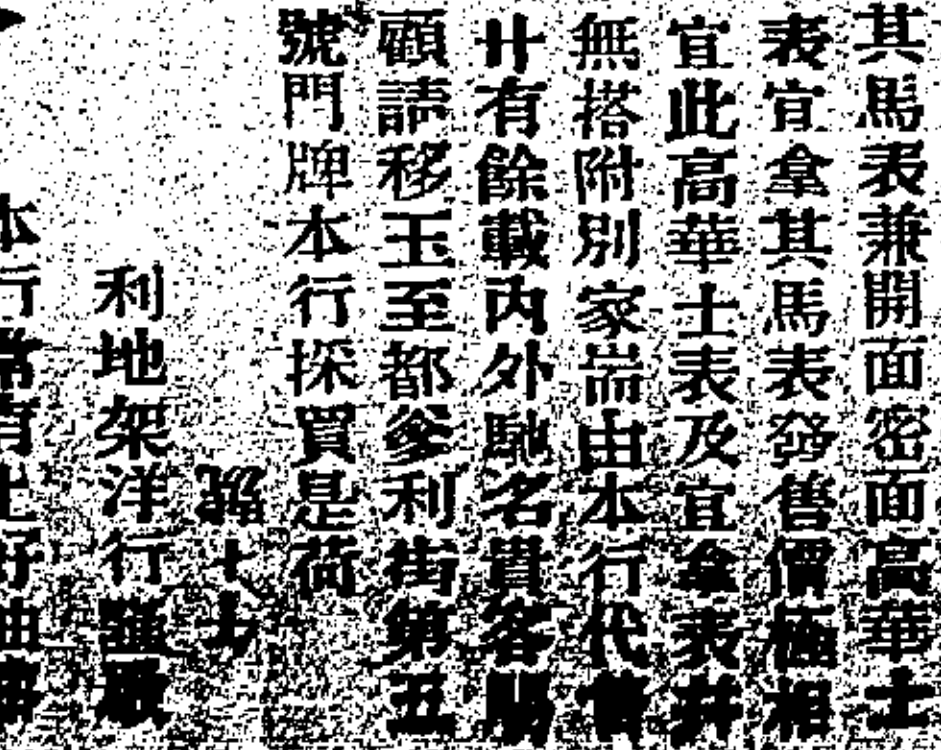 其馬表兼開面密面高華士
表宜拿其馬表發售價極相
宜此高華士表及宜拿表並
無搭附別家耑由本行代售
廿有餘載內外馳名貴客賜
顧請移玉至都爹利街第五
號門牌本行採買是荷
號十七
利地架洋行
本行常有上好油